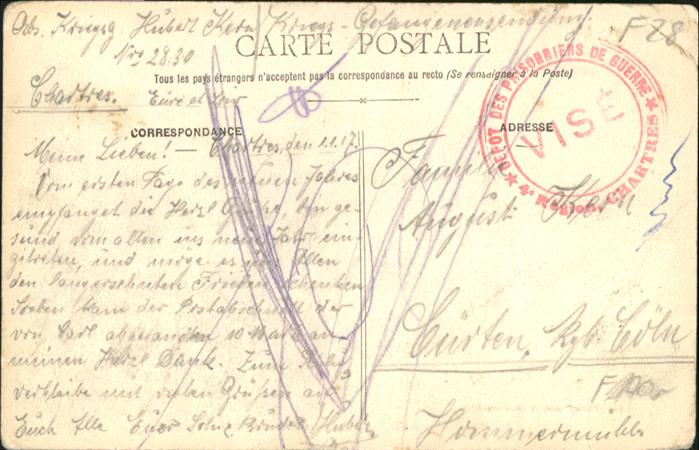 Abs. Kriegsg. Hubert Kern Kriegs-Gefangenensendung.
Nro 2830
F 28
CARTE POSTALE
Tous les pays étrangers n'acceptent pas la correspondance au recto (Se renseigner à la Poste)
Chartres. Eure et Loir
CORRESPONDANCE
ADRESSE
DÉPÔT DES PRISONNIERS DE GUERRE
VISÉ
4e Région, CHARTRES
Meine Lieben! — Chartres, den 1.1.17.
Vom ersten Tage des neuen Jahres
empfanget die Herzl Grüße, bin ge-
sund vom alten ins neue Jahr ein-
getreten, und möge es uns Allen
den langersehnten Frieden
Soeben kam der Postabschnitt der
von Carl abgesandten 10 Mark an
meinen Herzl Dank. Zum
verbleibe mit vielen Grüßen an
Euch Alle Euer Sohn & Bruder Hubert
Familie
August Kern
Cürten, Rgb. Cöln
Hommermühle